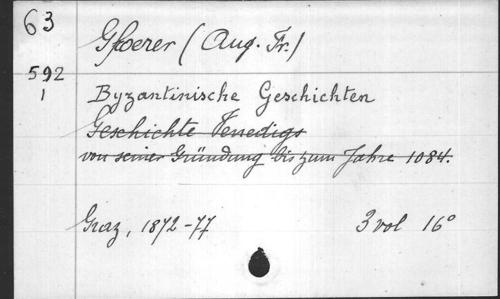 63
Gfoerer (Aug. Fr.)
592
1
Byzantinische Geschichten
Geschichte Venedigs
von seiner Gründung bis zum Jahre 1084.
Graz, 1872-77 3 vol 16°